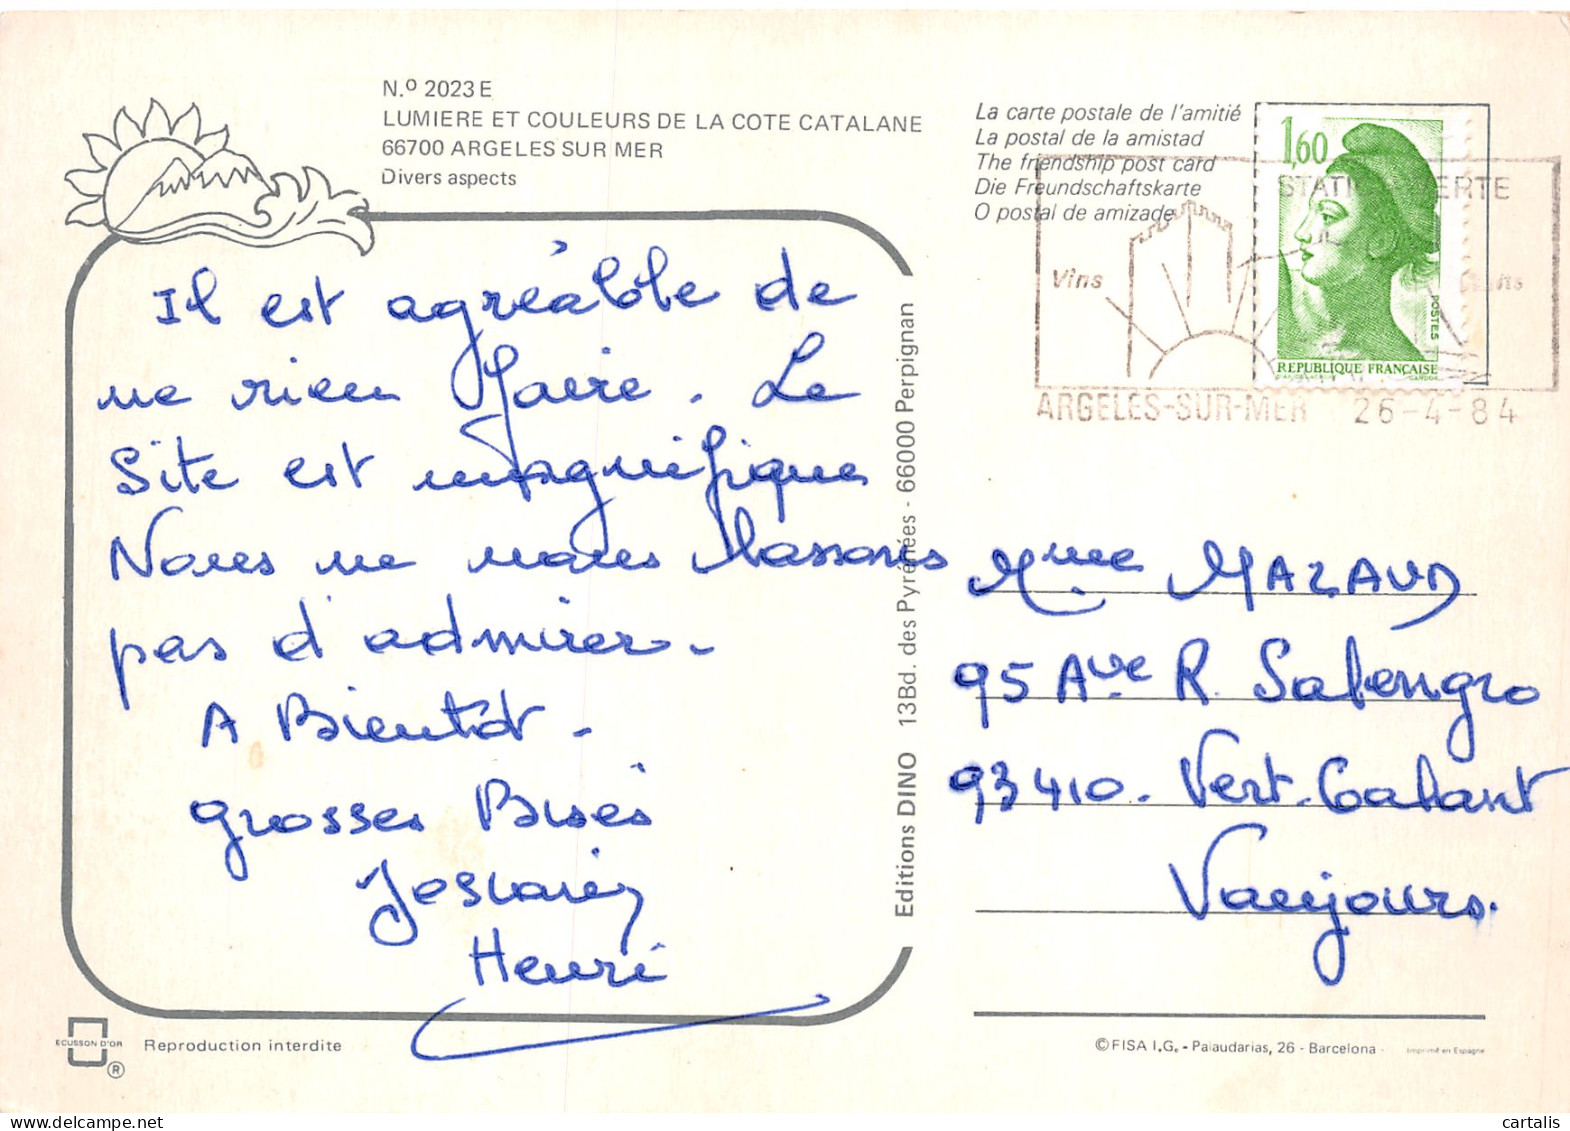 N.º 2023 E
LUMIERE ET COULEURS DE LA COTE CATALANE
66700 ARGELES SUR MER
Divers aspects
La carte postale de l'amitié
La postal de la amistad
The friendship post card
Die Freundschaftskarte
O postal de amizade
1,60
POSTES
REPUBLIQUE FRANÇAISE
GANDON
Vins
ARGELES-SUR-MER 26-4-84
Il est agréable de
ne rien faire. Le
Site est magnifique
Nous ne nous lassons
pas d'admirer.
A Bientôt.
grosses Bises
Henri
Editions DINO 13Bd. des Pyrénées - 66000 Perpignan
Mme MAZAUD
95 Ave R. Salengro
93410. Vert. Galant
Vaujours.
ECUSSON D'OR
®
Reproduction interdite
© FISA I.G. - Palaudarias, 26 - Barcelona
Imprimé en Espagne
cartalis